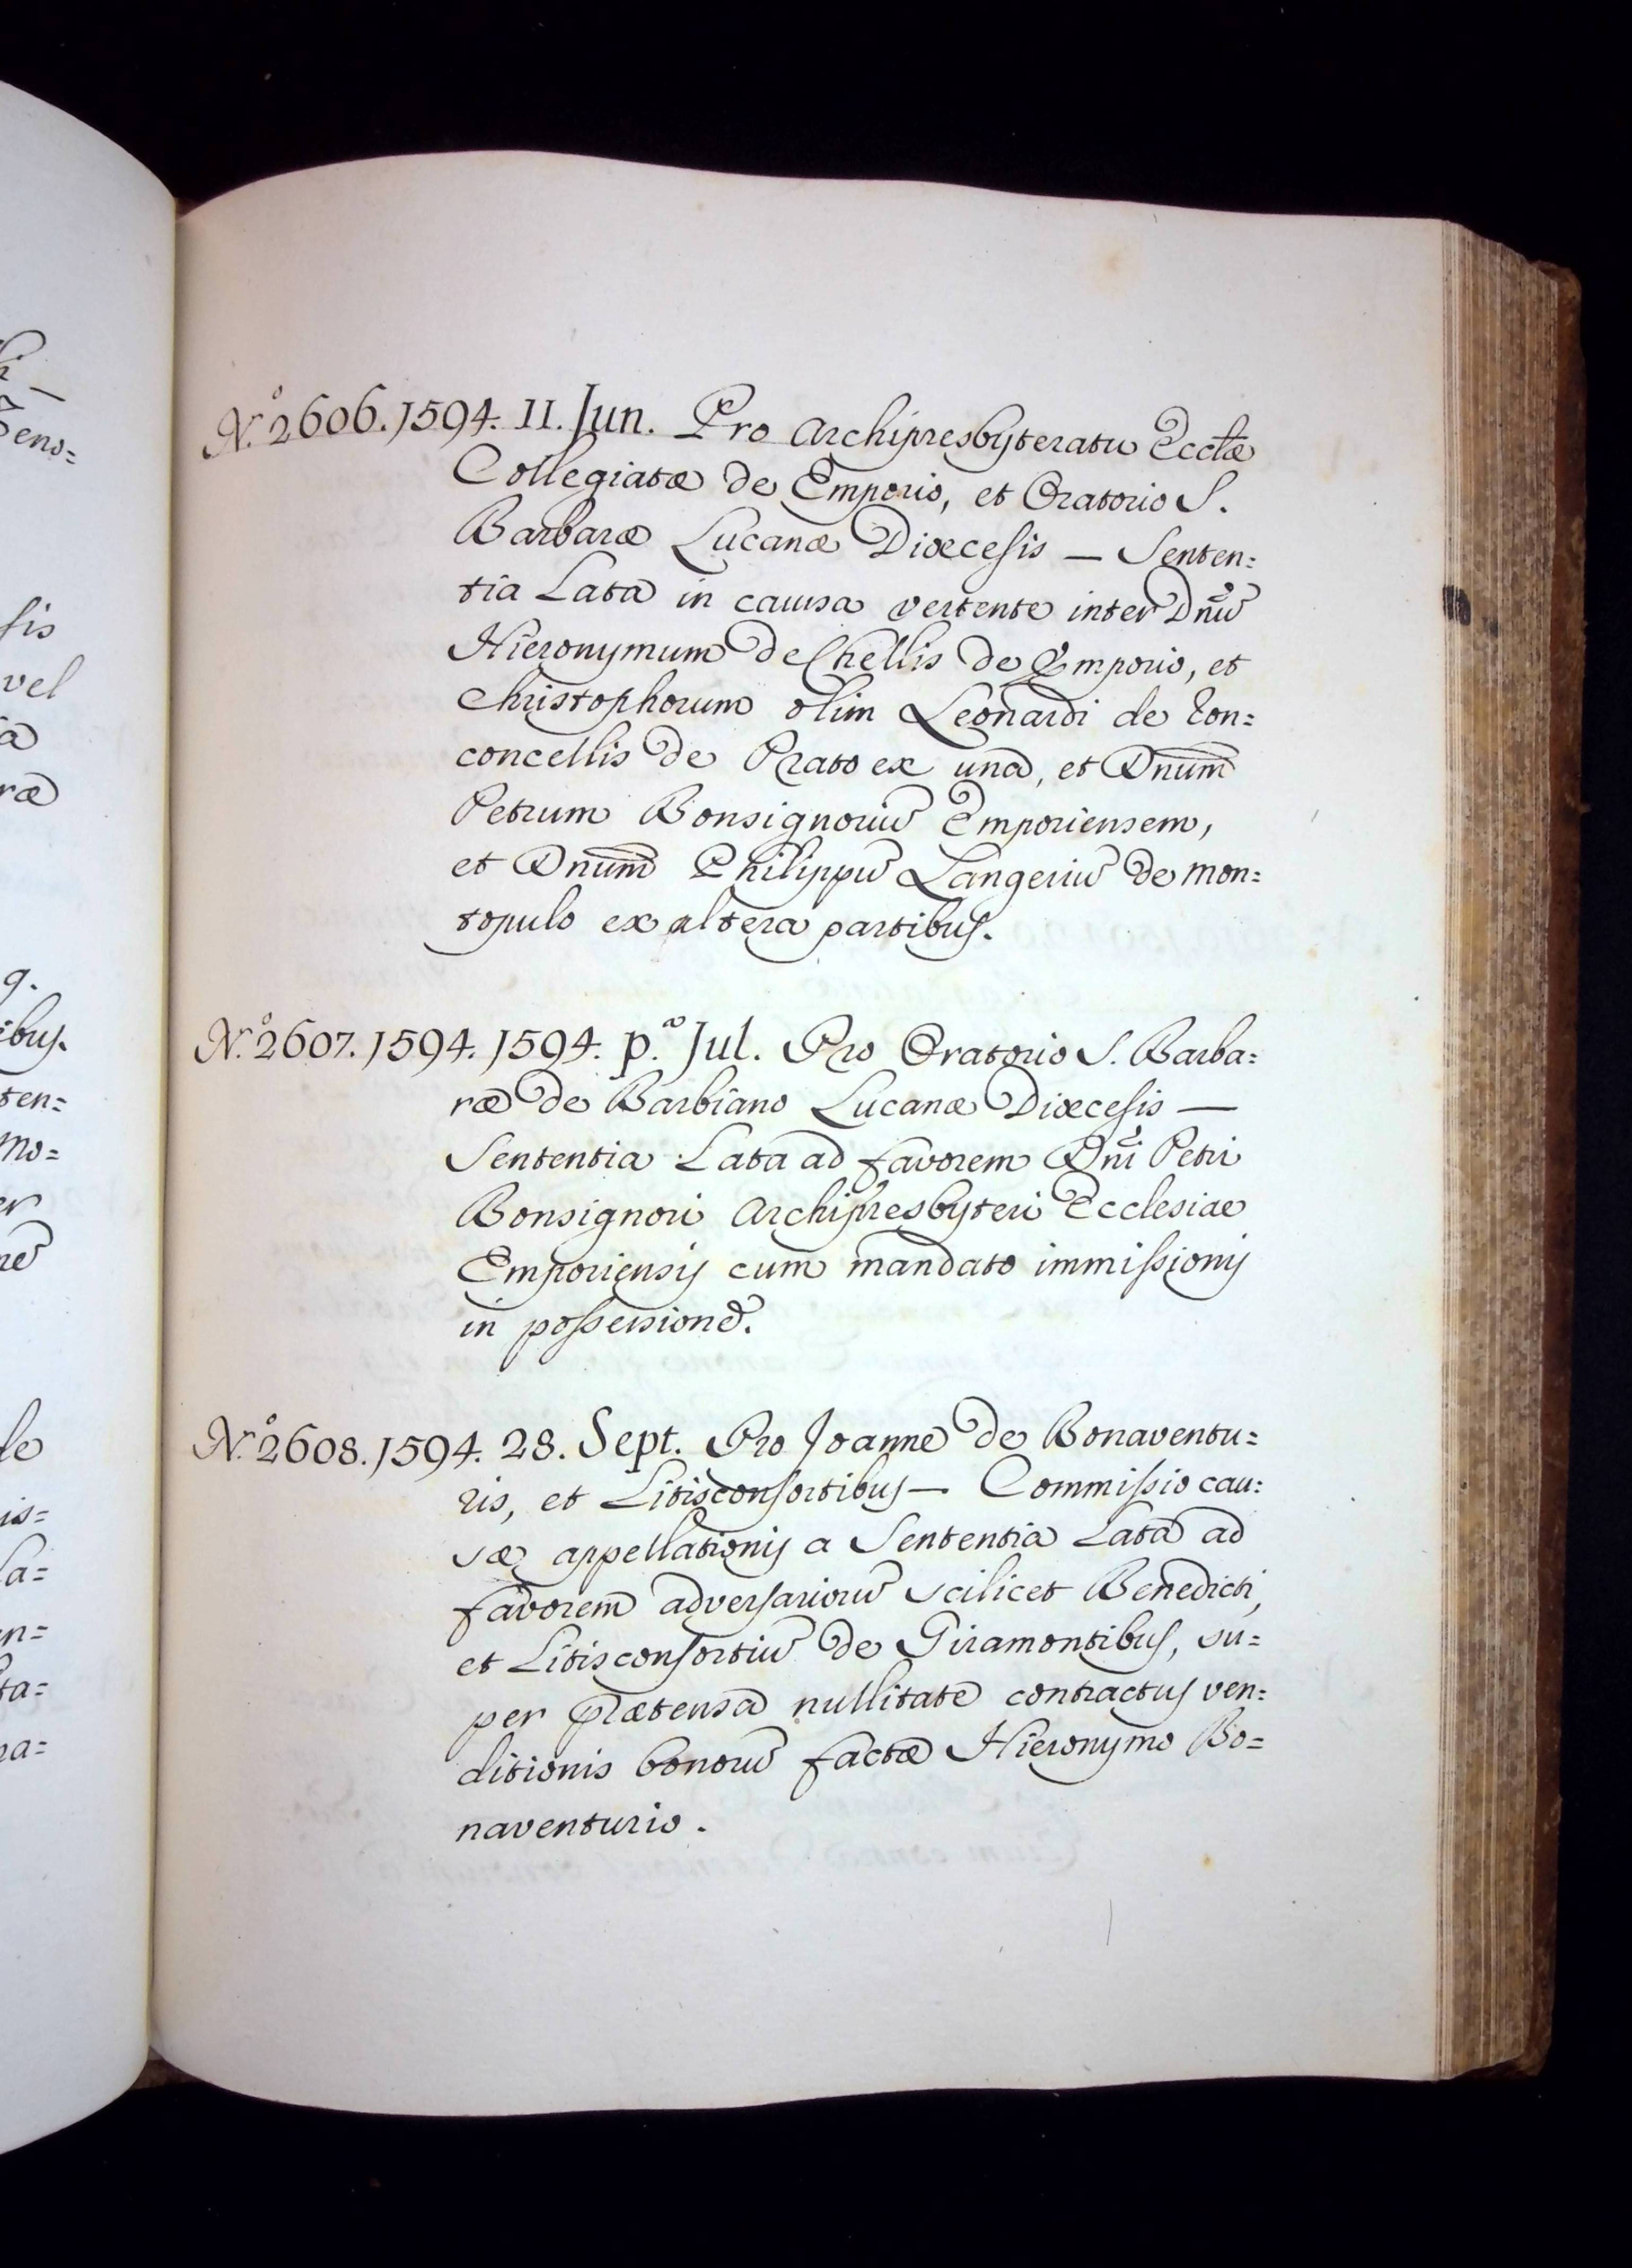 N.º 2606. 1594. 11. Jun. Pro Archipresbyteratu Ecclæ
Collegiatæ de Emporio, et Oratorio S.
Barbaræ Lucanæ Diœcesis — Senten=
tia Lata in causa vertente inter Dnũ
Hieronymum de Chellis de Emporio, et
Christophorum olim Leonardi de Ron=
concellis de Prato ex una, et Dnum
Petrum Bonsignoriũ Emporiensem,
et Dnum Philippũ Langeriũ de Mon=
topulo ex altera partibus.
N.º 2607. 1594. 1594. p.ª Jul. Pro Oratorio S. Barba=
ræ de Barbiano Lucanæ Diœcesis —
Sententia Lata ad favorem Dnĩ Petri
Bonsignori Archipresbyteri Ecclesiae
Emporiensis cum mandato immissionis
in possessionẽ.
N.º 2608. 1594. 28. Sept. Pro Joanne de Bonaventu=
ris, et Litisconsortibus — Commissio cau=
sæ appellationis a Sententia Lata ad
favorem adversariorũ scilicet Benedicti,
et Litisconsortiũ de Giramontibus, su=
per prætensa nullitate contractus ven=
ditionis bonorũ factæ Hieronymo Bo=
naventurio.